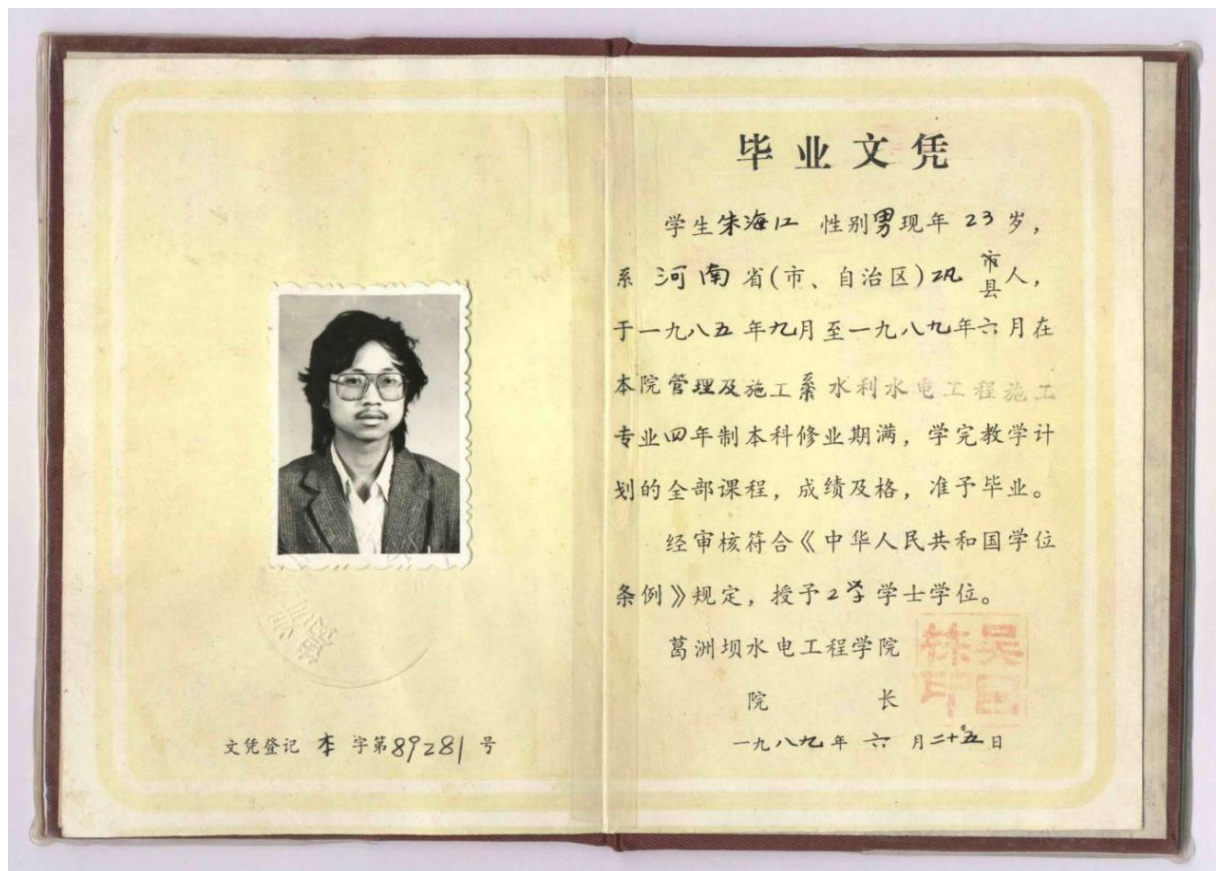 文凭登记 本 字第89281号
毕业文凭
学生朱海江 性别男现年 23 岁，
系 河南 省(市、自治区)巩 市县人，
于一九八五年九月至一九八九年六月在
本院管理及施工系水利水电工程施工
专业四年制本科修业期满，学完教学计
划的全部课程，成绩及格，准予毕业。
经审核符合《中华人民共和国学位
条例》规定，授予工学学士学位。
葛洲坝水电工程学院
院 长
一九八九年 六 月二十五日